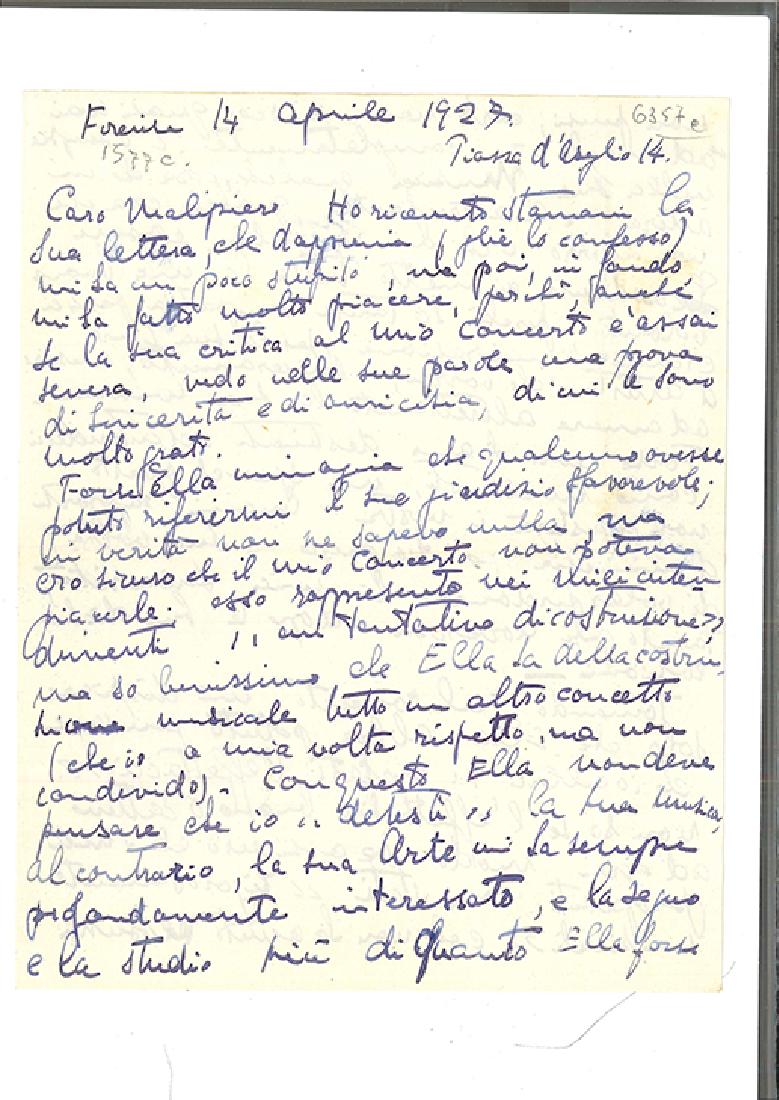 Firenze 14 aprile 1927.
6357 e
1577 c.
Piazza d'Azeglio 14.
Caro Malipiero, Ho ricevuto stamani la
Sua lettera, che dapprima (glie lo confesso)
mi ha un poco stupito, ma poi, in fondo
mi ha fatto molto piacere, perchè, anche
se la sua critica al mio Concerto è assai
severa, vedo nelle sue parole una prova
di sincerità e di amicizia, di cui le sono
molto grato.
Forse Ella immagina che qualcuno avesse
potuto riferirmi il suo giudizio sfavorevole;
in verità non ne sapevo nulla, ma
ero sicuro che il mio Concerto non poteva
piacerle; esso rappresenta nei miei inten
dimenti ,, un tentativo di costruzione ,,
ma so benissimo che Ella ha della costru,
zione musicale tutto un altro concetto
(che io a mia volta rispetto, ma non
condivido). Con questo Ella non deve
pensare che io ,, detesti ,, la sua Musica,
al contrario, la sua Arte mi ha sempre
profondamente interessato, e la seguo
e la studio più di quanto Ella forse